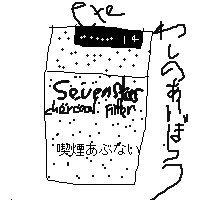 exe
14
Sevenstars
charcoal Filter
喫煙あぶない
わしのあいぼう